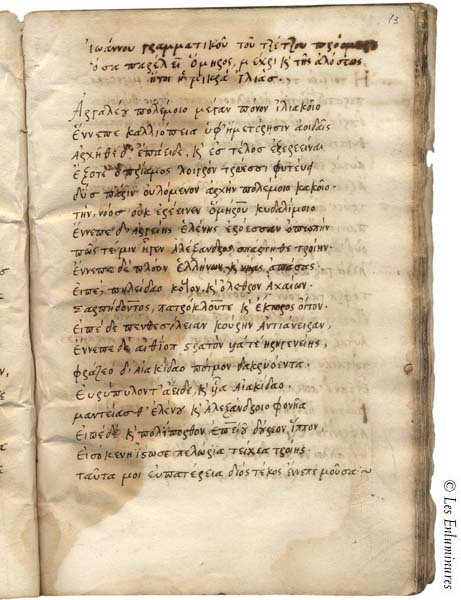 Ἰωάννου γραμματικοῦ τοῦ τζέτζου τὰ πρὸ ὁμήρου
ὅσα παρέλειπεν Ὅμηρος, μέχρι κ τῆς ἁλώσεως
ἤτοι ἡ μικρὰ ἰλιάς.
Ἀργαλέου πολέμοιο μέγαν πόνον ἰλιακοῖο
ἔννεπε καλλιόπεια ὑφ' ἡμετέρησιν ἀοιδαῖς
Ἀρχῆθε δ' ἐπάειδε, κ ἐς τέλος ἐξερέεινε
ἐξότε δὴ πρίαμος λοιγὸν τρώεσσι φύτευσε
δύσπαριν οὐλόμενον ἀρχὴν πολέμοιο κακοῖο·
τὴν νόος οὐκ ἐρέεινεν ὁμήρου κυδαλίμοιο
ἔννεπε δ' Ἀργείης ἑλένης ἐρόεσσαν ὀπωπήν
πῶς τέ μιν ἦγεν Ἀλέξανδρος σπάρτηθε τροίην·
ἔννεπε δὲ πλόον ἑλλήνων, κ νῆας ἁπάσας·
Εἰπὲ, πηλείδαο χόλον, κ ὄλεθρον Ἀχαιῶν·
Σαρπήδοντος, πατρόκλου τε κ ἕκτορος οἶτον·
Εἰπὲ δὲ πενθεσίλειαν κούρην ἀντιάνειραν,
ἔννεπε δ' αἰθιόπων στρατὸν υἷά τε ἠριγενείης,
φράζεο δ' Αἰακίδαο πότμον δακρυόεντα
Εὐρύπυλόν τ' ἄειδε, κ υἷα Αἰακίδαο·
μαντείας θ' ἑλένου κ Ἀλεξάνδροιο φονῆα
Εἰπὲ δὲ κ πτολίπορθον ἐπειοῦ δούρεον ἵππον,
πελώρια τείχεα τροίης·
ταῦτά μοι εὐπατέρεια διὸς τέκος ἔννεπε μοῦσα ~
13
© Les Enluminures